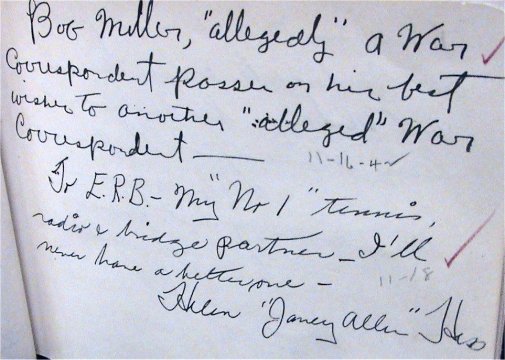 Bob Miller, "allegedly" a War
Correspondent passes on his best
wishes to another "alleged" War
Correspondent —
11-16-42
To E.R.B. - My "No 1" tennis,
radio & bridge partner - I'll
never have a better one -
11-18
Helen "Janey Allen" Hess